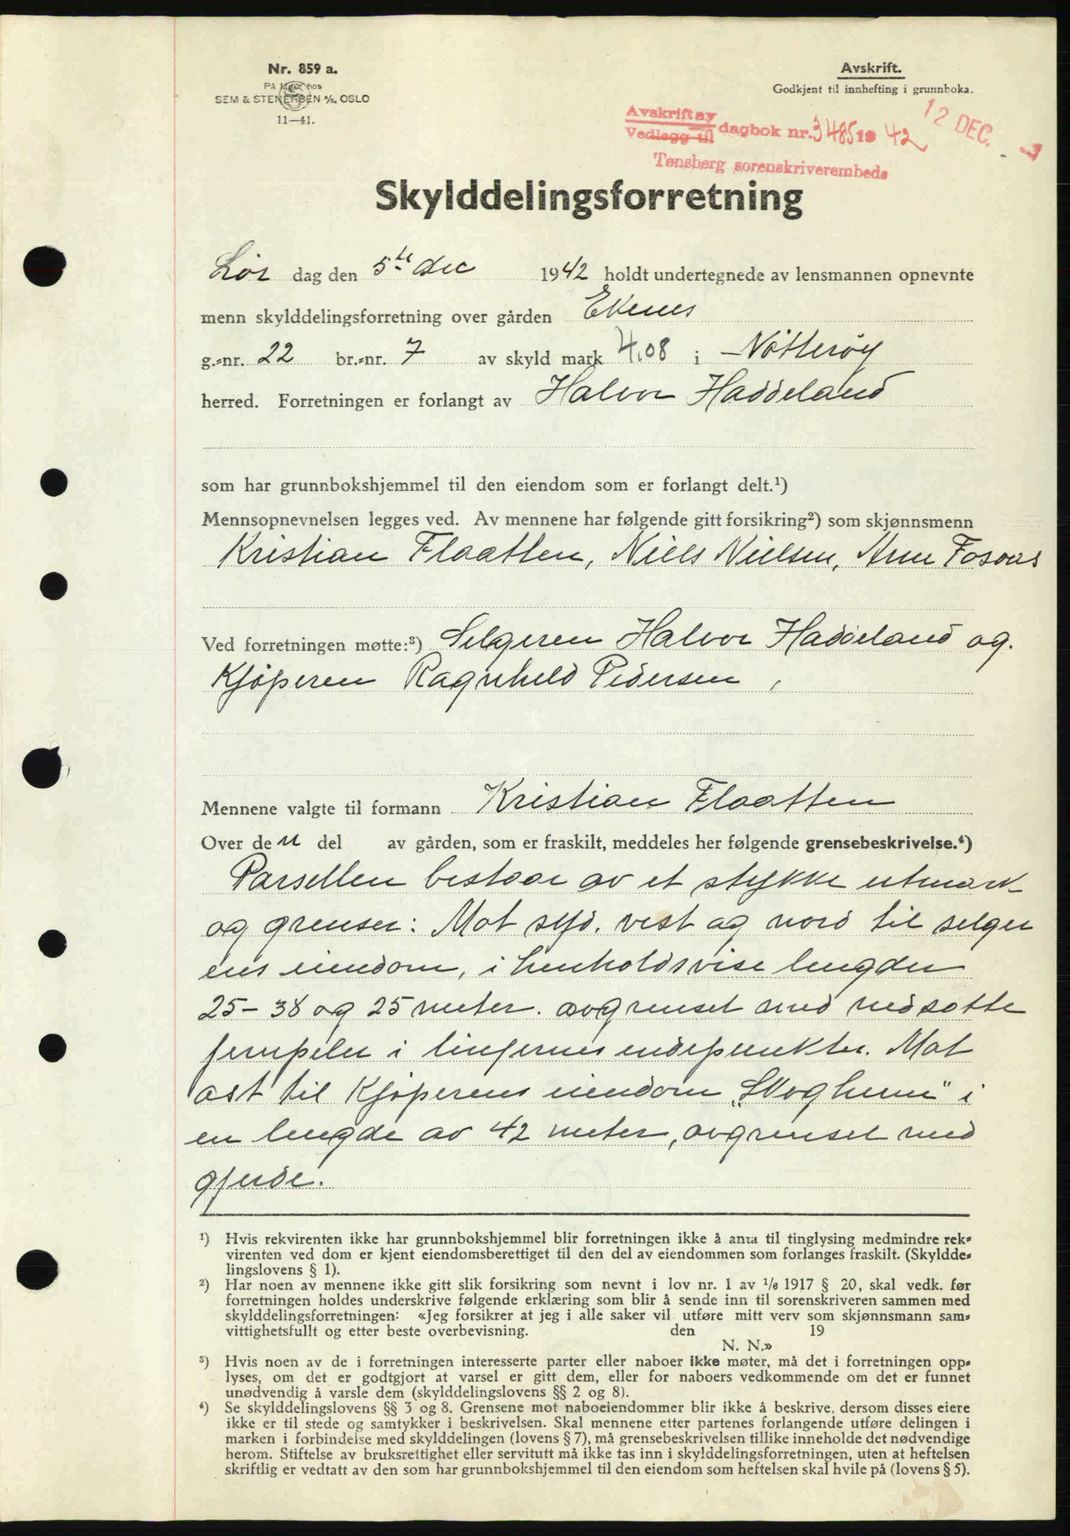 Nr. 859 a.
På lager hos
SEM & STENERSEN A/S, OSLO
11—41.
Avskrift.
Godkjent til innhefting i grunnboka.
Avskrift av
Vedlegg til dagbok nr. 3485 1942
12 DEC.
Tønsberg sorenskriverembede
Skylddelingsforretning
Lør dag den 5te dec 1942 holdt undertegnede av lensmannen opnevnte
menn skylddelingsforretning over gården Ekenes
g.-nr. 22 br.-nr. 7 av skyld mark 4.08 i Nötteröy
herred. Forretningen er forlangt av Halvor Haddeland
som har grunnbokshjemmel til den eiendom som er forlangt delt.¹)
Mennsopnevnelsen legges ved. Av mennene har følgende gitt forsikring²) som skjønnsmenn
Kristian Flaatten, Niels Nielsen, Arne Fosaas
Ved forretningen møtte:³) Selgeren Halvor Haddeland og
Kjöperen Ragnhild Pedersen,
Mennene valgte til formann Kristian Flaatten
Over den del av gården, som er fraskilt, meddeles her følgende grensebeskrivelse.⁴)
Parsellen bestaar av et stykke utmark
og grenser: Mot syd, vest og nord til selger
ens eiendom, i henholdsvise lengder
25 – 38 og 25 meter. avgrenset med nedsatte
jernpeler i linjernes endepunkter. Mot
ost til Kjöperens eiendom „Skogheim" i
en lengde av 42 meter, avgrenset med
gjerde.
¹) Hvis rekvirenten ikke har grunnbokshjemmel blir forretningen ikke å anta til tinglysing medmindre rek-
virenten ved dom er kjent eiendomsberettiget til den del av eiendommen som forlanges fraskilt. (Skyldde-
lingslovens § 1).
²) Har noen av mennene ikke gitt slik forsikring som nevnt i lov nr. 1 av 1/6 1917 § 20, skal vedk. før
forretningen holdes underskrive følgende erklæring som blir å sende inn til sorenskriveren sammen med
skylddelingsforretningen: «Jeg forsikrer at jeg i alle saker vil utføre mitt verv som skjønnsmann sam-
vittighetsfullt og etter beste overbevisning. den 19
N. N.»
³) Hvis noen av de i forretningen interesserte parter eller naboer ikke møter, må det i forretningen opp-
lyses, om det er godtgjort at varsel er gitt dem, eller for naboers vedkommende om det er funnet
unødvendig å varsle dem (skylddelingslovens §§ 2 og 8).
⁴) Se skylddelingslovens §§ 3 og 8. Grensene mot naboeiendommer blir ikke å beskrive, dersom disses eiere
ikke er til stede og samtykker i beskrivelsen. Skal mennene etter partenes forlangende utføre delingen i
marken i forbindelse med skylddelingen (lovens § 7), må grensebeskrivelsen tillike inneholde det nødvendige
herom. Stiftelse av bruksrettighet eller servitutt må ikke tas inn i skylddelingsforretningen, uten at heftelsen
skriftlig er vedtatt av den som har grunnbokshjemmel til den eiendom som heftelsen skal hvile på (lovens § 5).